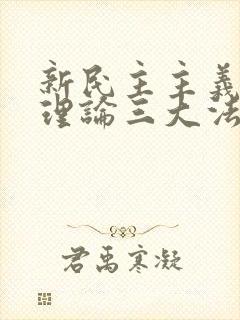 新民主主義
理論三大法
君禹寒凝